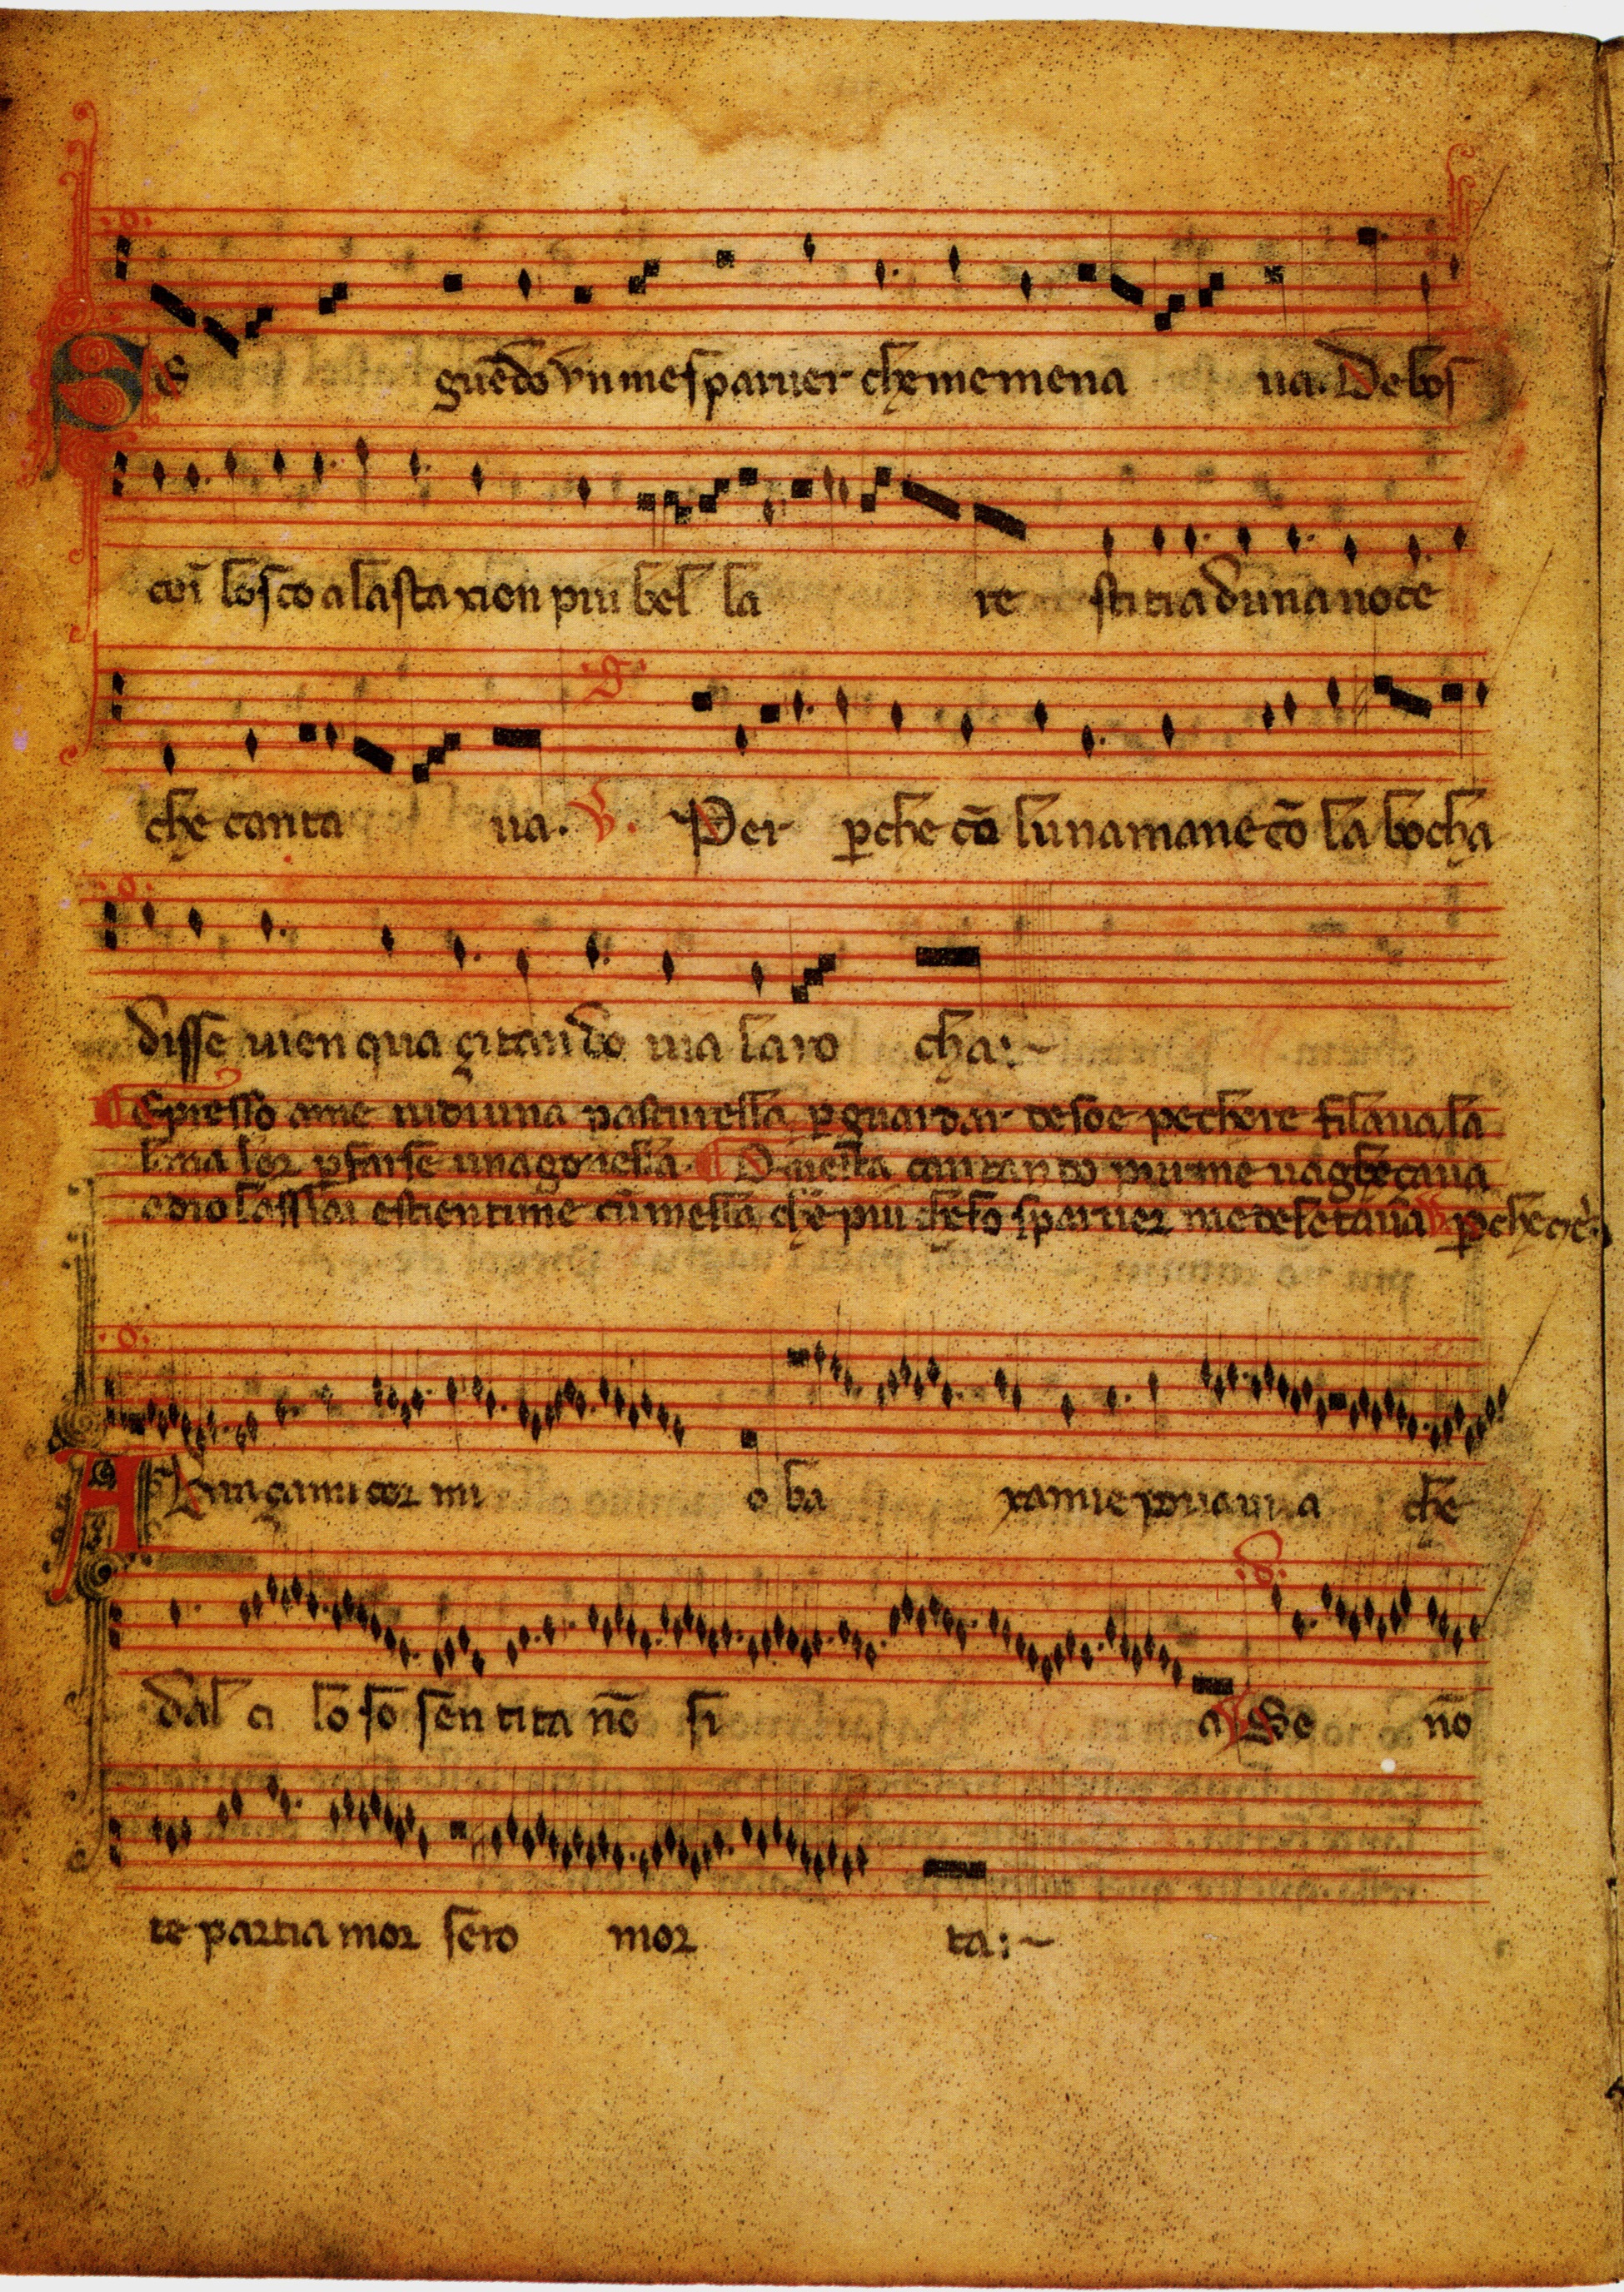 Se guēdo vn me sparuer che me mena ua. De bos
coī bosco a la staxion piu bel la re stitia duna uoce
che canta ua. V. Per p̱che cō luna mane cō la bocha
disse uien qua çitando uia la ro cha:~
Epresso ame uidi una pasturella p̱ guardar de soe pechere filaua la
lana lor p̱ farse una gonella. Quella cantando piu me uagheçaua
edio lassai cū quella che piu chelo sparuer me deletaua p̱che
Abraçami cor mi o ba xamie po ui a che
dal ci lo so sen ti ta nō si a V Se nō
te parti amor sero mor ta:~